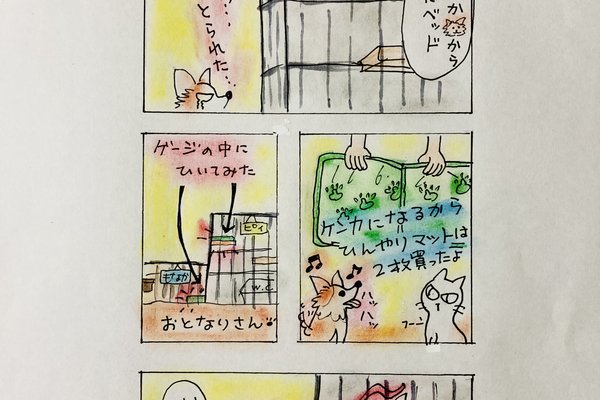 か から
ベッド
とられた…
ケンカになるから
ひんやりマットは
2枚買ったよ
ハッハッ
フーン
ゲージの中に
ひいてみた
ピィ
もなか
W.C
おとなりさん